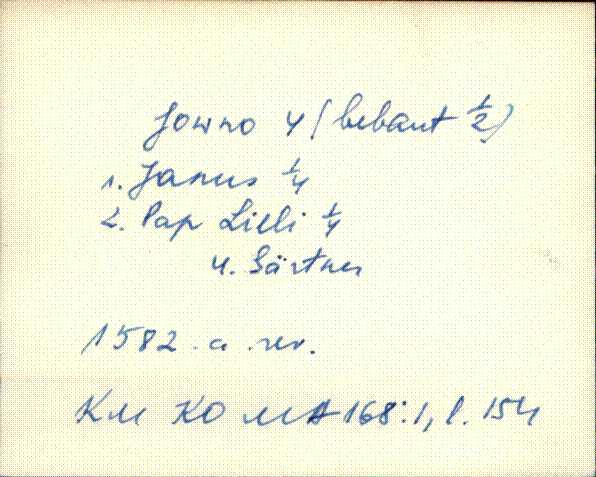 Jowno 4 (bebaut ½)
1. Janus ¼
2. Pap Lilli ¼
4. Gärtner
1582 a. rev.
KM KO MA 168:1, l. 154